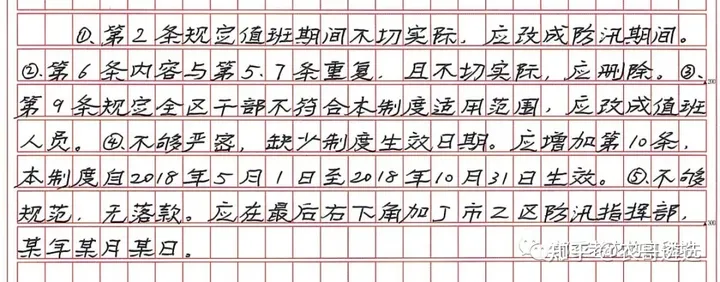 ①、第2条规定值班期间不切实际，应改成防汛期间。
②、第6条内容与第5、7条重复，且不切实际，应删除。③、
第9条规定全区干部不符合本制度适用范围，应改成值班
人员。④、不够严密，缺少制度生效日期。应增加第10条，
本制度自2018年5月1日至2018年10月31日生效。⑤、不够
规范，无落款。应在最后右下角加J市Z区防汛指挥部，
某年某月某日。
知乎@农哥遴选